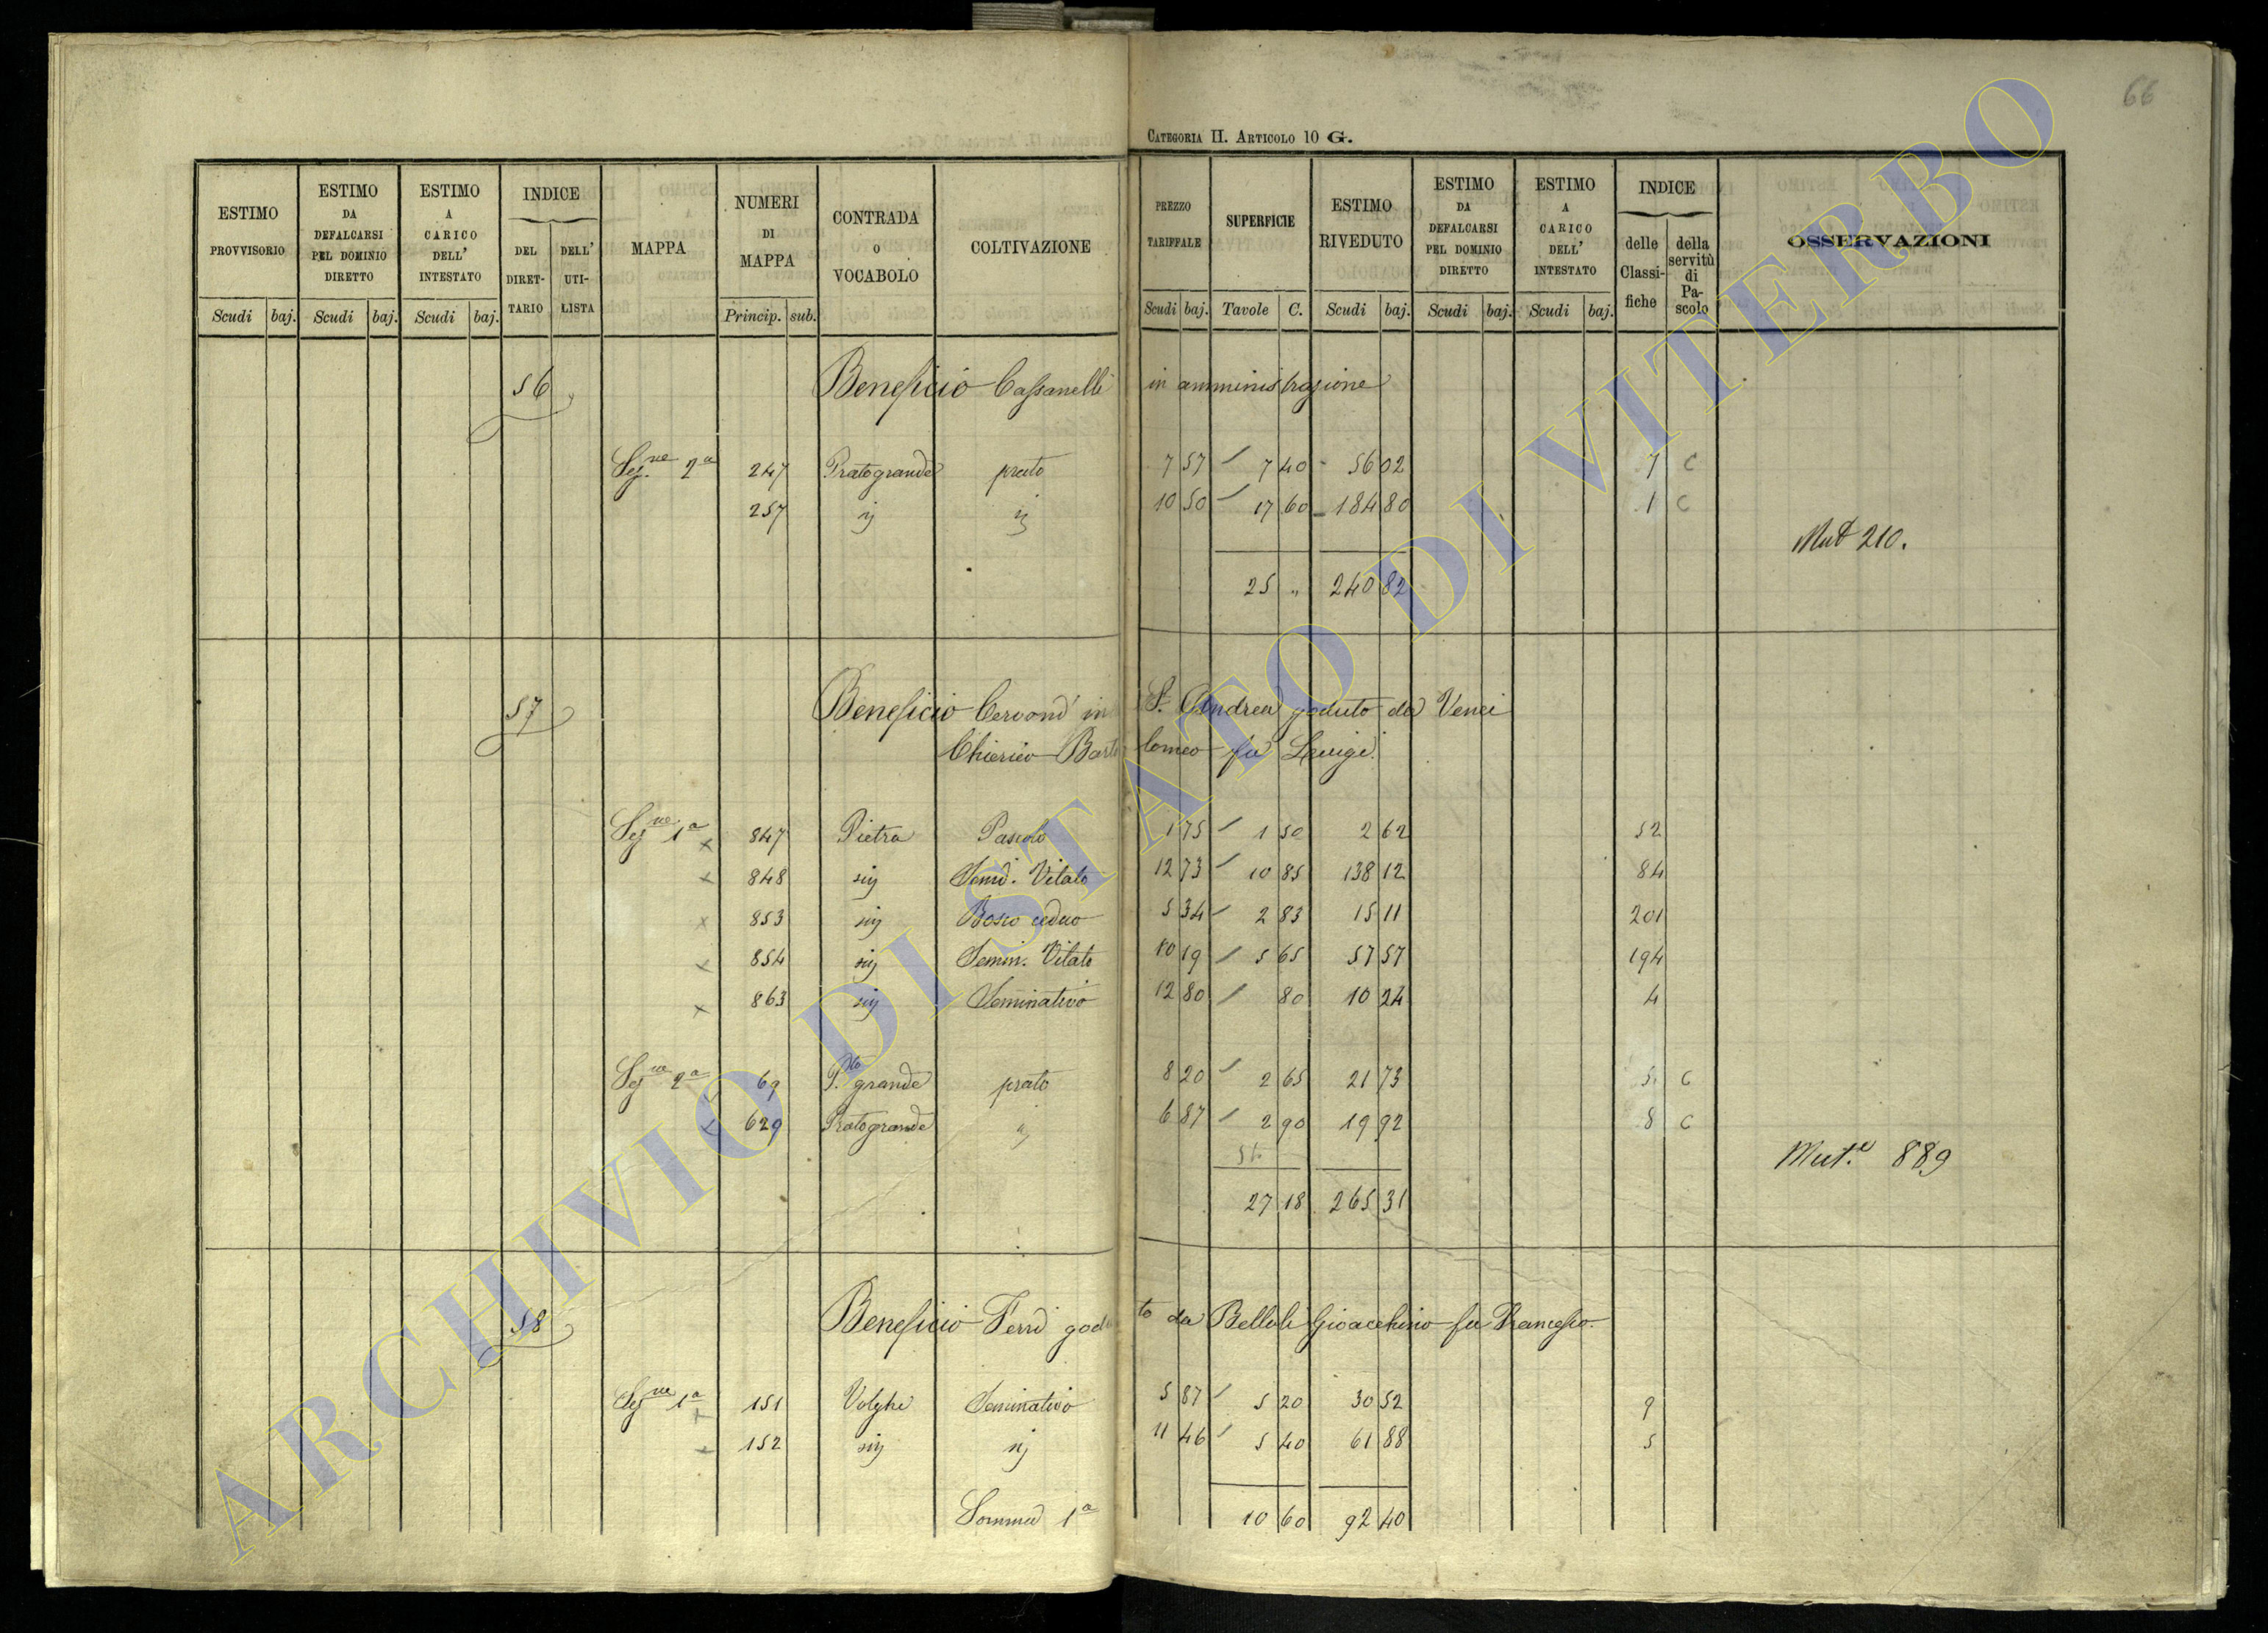 66
CATEGORIA II. ARTICOLO 10 G.
ESTIMO PROVVISORIO Scudi baj.
ESTIMO DA DEFALCARSI PEL DOMINIO DIRETTO Scudi baj.
ESTIMO A CARICO DELL' INTESTATO Scudi baj.
INDICE DEL DIRET-TARIO DELL' UTI-LISTA
MAPPA
NUMERI DI MAPPA Princip. sub.
CONTRADA O VOCABOLO
COLTIVAZIONE
PREZZO TARIFFALE Scudi baj.
SUPERFICIE Tavole C.
ESTIMO RIVEDUTO Scudi baj.
ESTIMO DA DEFALCARSI PEL DOMINIO DIRETTO Scudi baj.
ESTIMO A CARICO DELL' INTESTATO Scudi baj.
INDICE delle Classi-fiche della servitù di Pa-scolo
OSSERVAZIONI
56 Beneficio Cassanelli in amministrazione
Sez.ne 2a 247 Pratogrande prato 7 57 7 40 56 02 7 C
257 ij ij 10 50 17 60 184 80 1 C
Mut 210.
25 " 240 82
57 Beneficio Cervoni in S. Andrea goduto da Venei
Chierico Bartolomeo fu Luigi
Sez.ne 1a 847 Pietra Pascolo 1 75 1 50 2 62 52
848 sij Semi. Vitato 12 73 10 85 138 12 84
853 sij Bosco ceduo 5 34 2 83 15 11 201
854 sij Semin. Vitato 10 19 5 65 57 57 194
863 sij Seminativo 12 80 80 10 24 4
Sez.ne 2a 69 P.to grande prato 8 20 2 65 21 73 5 C
629 Pratogrande ij 6 87 2 90 19 92 8 C
Mut.e 889
27 18 265 31
58 Beneficio Ferri goduto da Belluli Gioacchino fu Francesco.
Sez.ne 1a 151 Volghe Seminativo 5 87 5 20 30 52 9
152 sij ij 11 46 5 40 61 88 5
Somma 1a 10 60 92 40
ARCHIVIO DI STATO DI VITERBO